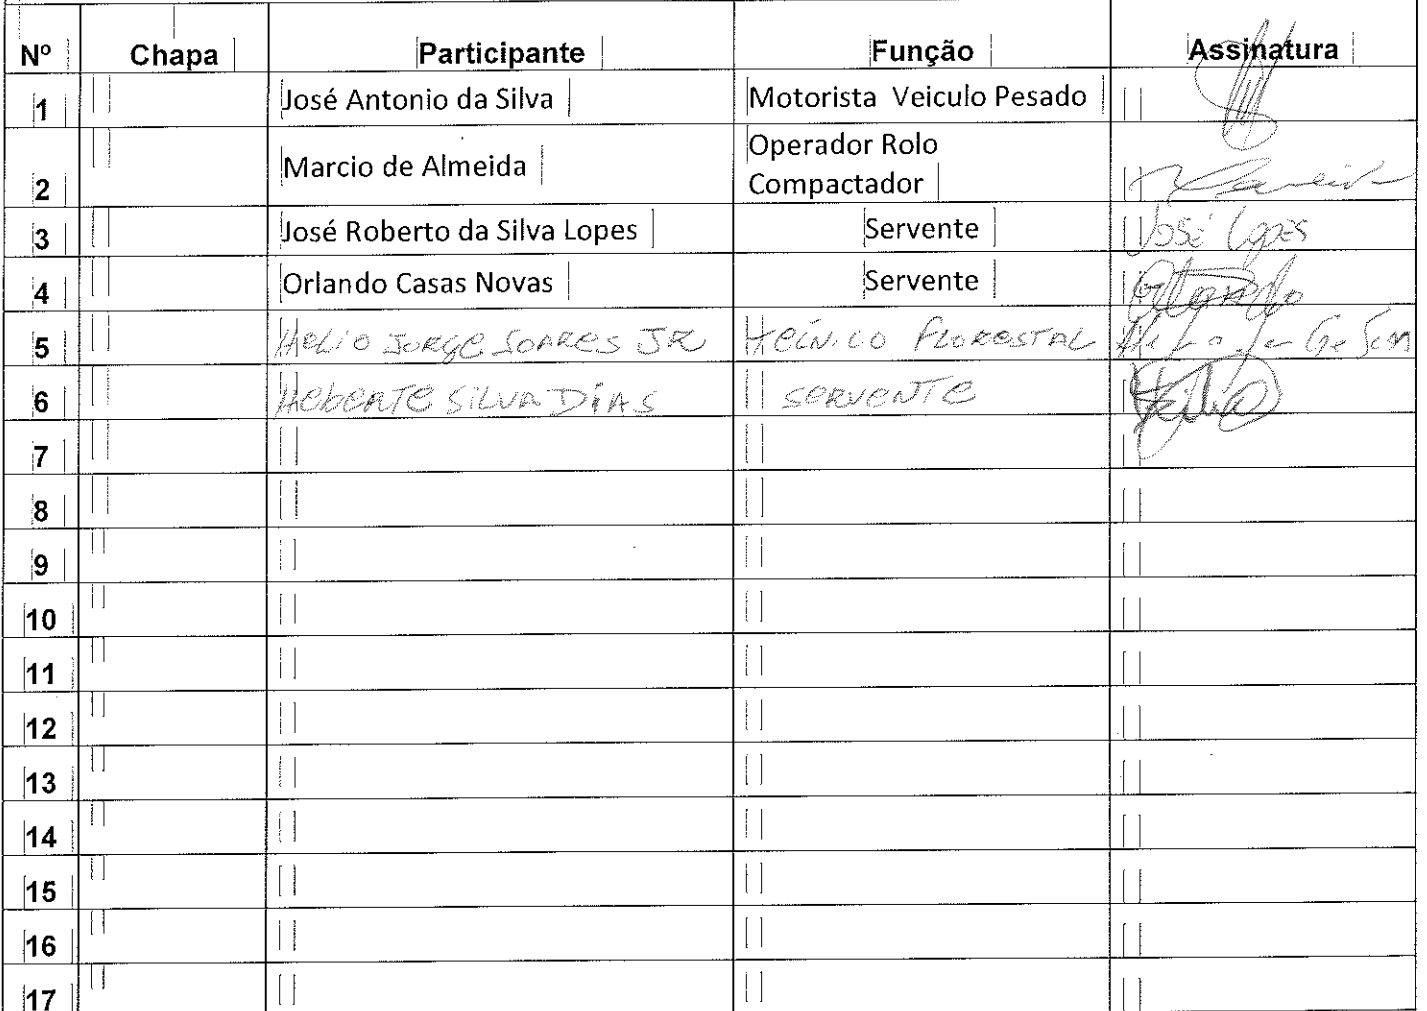 Nº Chapa Participante Função Assinatura
1 José Antonio da Silva Motorista Veiculo Pesado
2 Marcio de Almeida Operador Rolo
Compactador
3 José Roberto da Silva Lopes Servente José Lopes
4 Orlando Casas Novas Servente
5 HELIO JORGE SOARES JR TÉCNICO FLORESTAL
6 HEBERTE SILVA DIAS SERVENTE
7
8
9
10
11
12
13
14
15
16
17